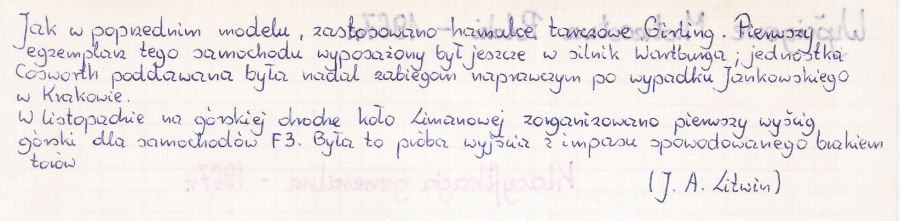 Jak w poprzednim modelu, zastosowano hamulce tarczowe Girling. Pierwszy
egzemplarz tego samochodu wyposażony był jeszcze w silnik Wartburga; jednostka
Cosworth poddawana była nadal zabiegom naprawczym po wypadku Jankowskiego
w Krakowie.
W listopadzie na górskiej drodze koło Limanowej zorganizowano pierwszy wyścig
górski dla samochodów F3. Była to próba wyjścia z impasu spowodowanego brakiem
torów
(J. A. Litwin)
Klasyfikacja generalna - 1967r.